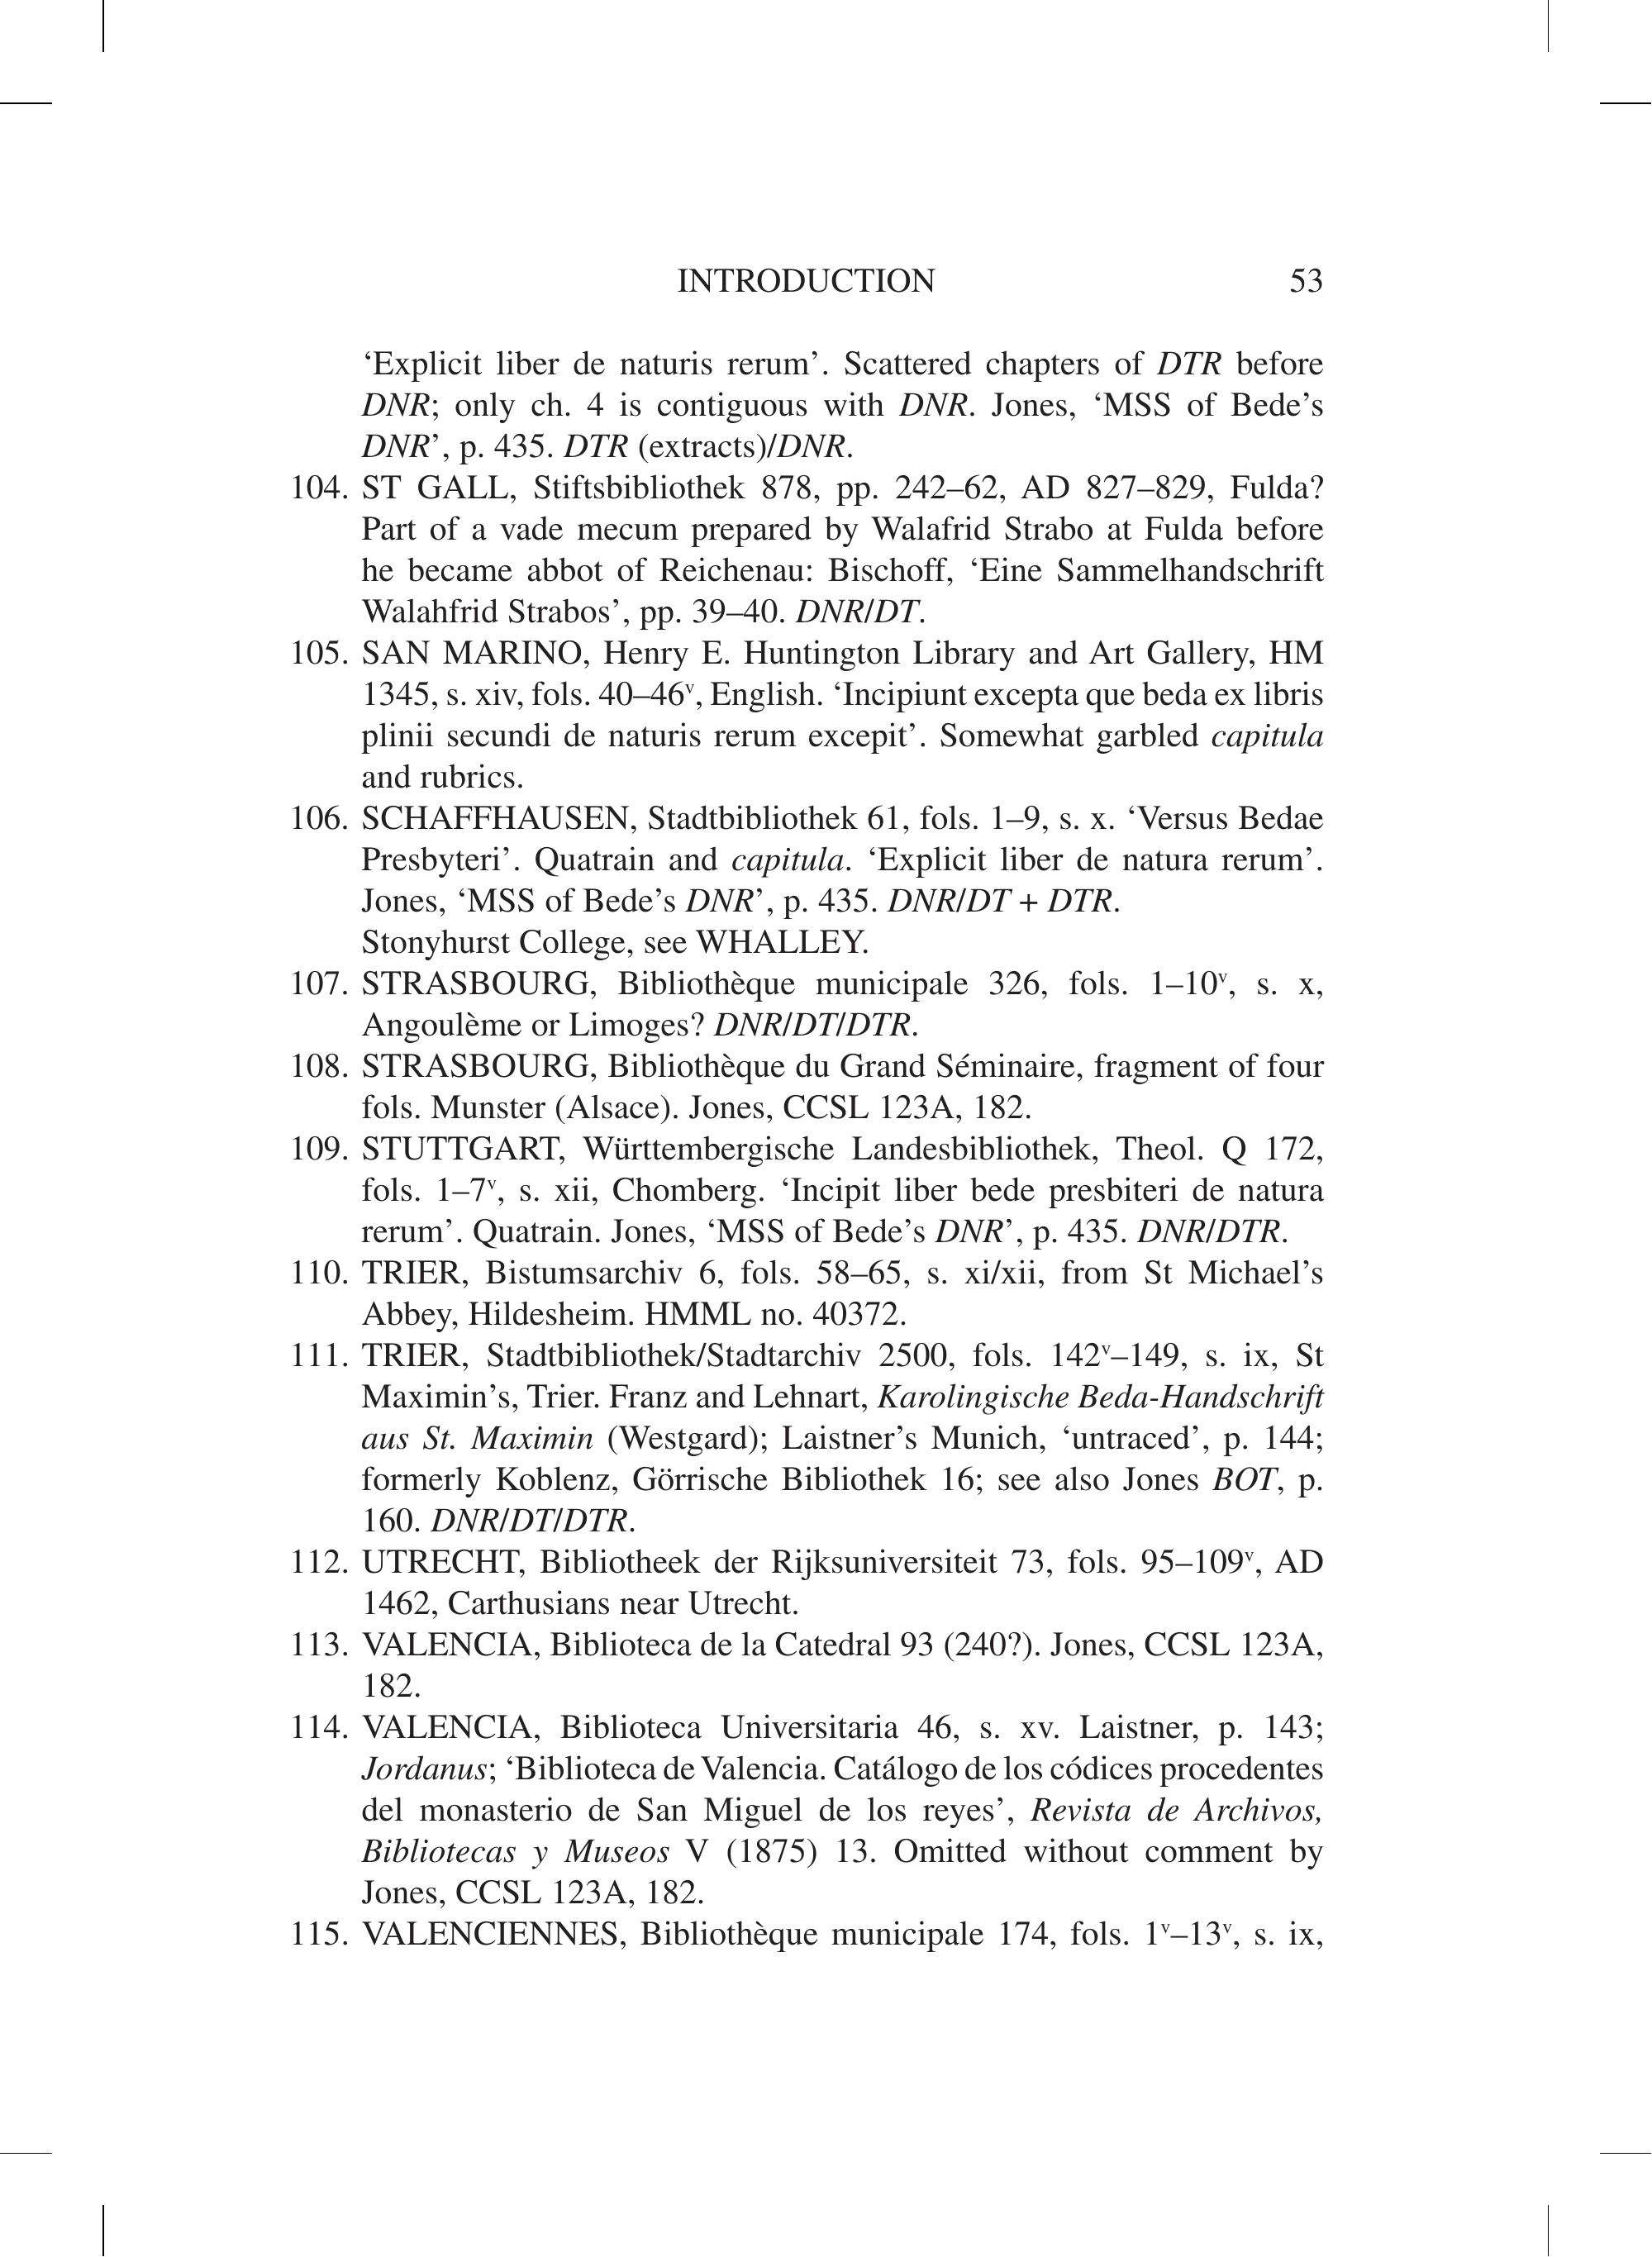 INTRODUCTION 53
‘Explicit liber de naturis rerum’. Scattered chapters of DTR before
DNR; only ch. 4 is contiguous with DNR. Jones, ‘MSS of Bede’s
DNR’, p. 435. DTR (extracts)/DNR.
104. ST GALL, Stiftsbibliothek 878, pp. 242–62, AD 827–829, Fulda?
Part of a vade mecum prepared by Walafrid Strabo at Fulda before
he became abbot of Reichenau: Bischoff, ‘Eine Sammelhandschrift
Walahfrid Strabos’, pp. 39–40. DNR/DT.
105. SAN MARINO, Henry E. Huntington Library and Art Gallery, HM
1345, s. xiv, fols. 40–46ᵛ, English. ‘Incipiunt excepta que beda ex libris
plinii secundi de naturis rerum excepit’. Somewhat garbled capitula
and rubrics.
106. SCHAFFHAUSEN, Stadtbibliothek 61, fols. 1–9, s. x. ‘Versus Bedae
Presbyteri’. Quatrain and capitula. ‘Explicit liber de natura rerum’.
Jones, ‘MSS of Bede’s DNR’, p. 435. DNR/DT + DTR.
Stonyhurst College, see WHALLEY.
107. STRASBOURG, Bibliothèque municipale 326, fols. 1–10ᵛ, s. x,
Angoulème or Limoges? DNR/DT/DTR.
108. STRASBOURG, Bibliothèque du Grand Séminaire, fragment of four
fols. Munster (Alsace). Jones, CCSL 123A, 182.
109. STUTTGART, Württembergische Landesbibliothek, Theol. Q 172,
fols. 1–7ᵛ, s. xii, Chomberg. ‘Incipit liber bede presbiteri de natura
rerum’. Quatrain. Jones, ‘MSS of Bede’s DNR’, p. 435. DNR/DTR.
110. TRIER, Bistumsarchiv 6, fols. 58–65, s. xi/xii, from St Michael’s
Abbey, Hildesheim. HMML no. 40372.
111. TRIER, Stadtbibliothek/Stadtarchiv 2500, fols. 142ᵛ–149, s. ix, St
Maximin’s, Trier. Franz and Lehnart, Karolingische Beda-Handschrift
aus St. Maximin (Westgard); Laistner’s Munich, ‘untraced’, p. 144;
formerly Koblenz, Görrische Bibliothek 16; see also Jones BOT, p.
160. DNR/DT/DTR.
112. UTRECHT, Bibliotheek der Rijksuniversiteit 73, fols. 95–109ᵛ, AD
1462, Carthusians near Utrecht.
113. VALENCIA, Biblioteca de la Catedral 93 (240?). Jones, CCSL 123A,
182.
114. VALENCIA, Biblioteca Universitaria 46, s. xv. Laistner, p. 143;
Jordanus; ‘Biblioteca de Valencia. Catálogo de los códices procedentes
del monasterio de San Miguel de los reyes’, Revista de Archivos,
Bibliotecas y Museos V (1875) 13. Omitted without comment by
Jones, CCSL 123A, 182.
115. VALENCIENNES, Bibliothèque municipale 174, fols. 1ᵛ–13ᵛ, s. ix,